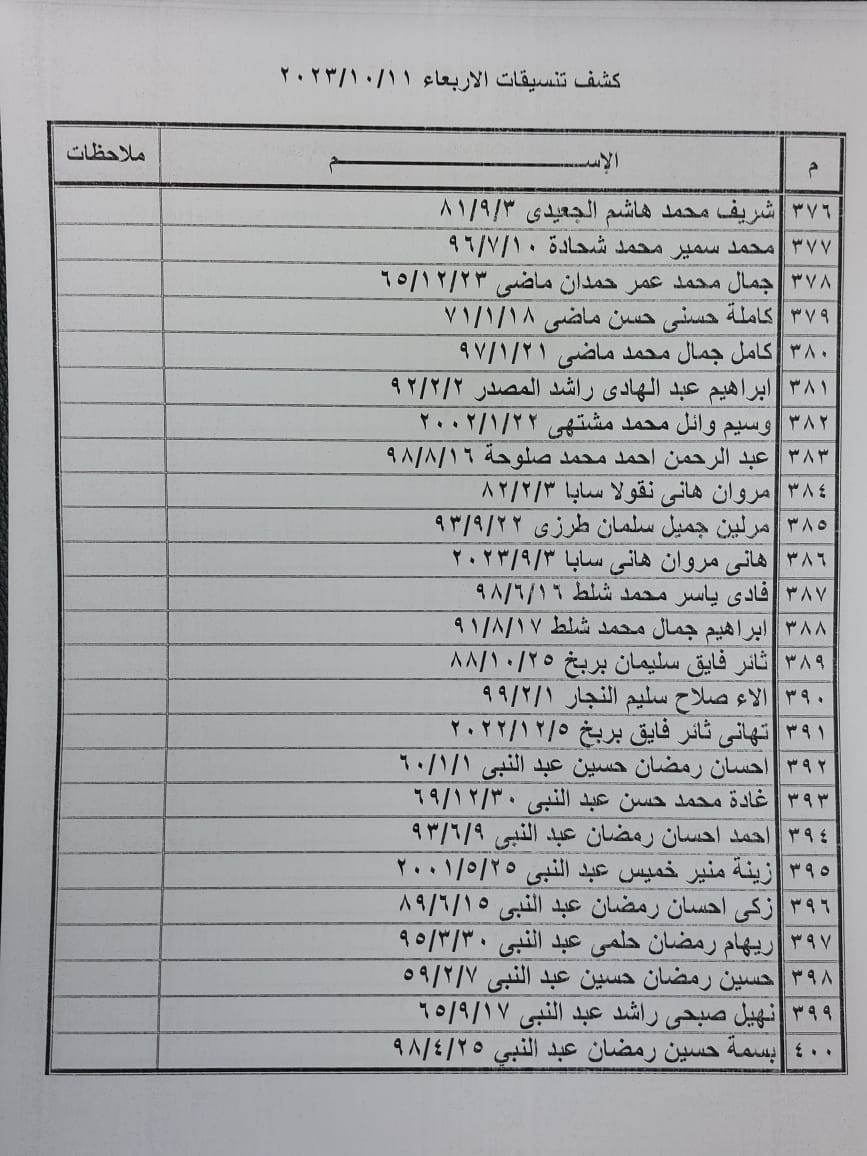 كشف تنسيقات الاربعاء ٢٠٢٣/١٠/١١
م الإســـــــــم ملاحظات
٣٧٦ شريف محمد هاشم الجعيدى ٨١/٩/٣
٣٧٧ محمد سمير محمد شحادة ٩٦/٧/١٠
٣٧٨ جمال محمد عمر حمدان ماضى ٦٥/١٢/٢٣
٣٧٩ كاملة حسنى حسن ماضى ٧١/١/١٨
٣٨٠ كامل جمال محمد ماضى ٩٧/١/٢١
٣٨١ ابراهيم عبد الهادى راشد المصدر ٩٢/٢/٢
٣٨٢ وسيم وائل محمد مشتهى ٢٠٠٢/١/٢٢
٣٨٣ عبد الرحمن احمد محمد صلوحة ٩٨/٨/١٦
٣٨٤ مروان هانى نقولا سابا ٨٢/٢/٣
٣٨٥ مرلين جميل سلمان طرزى ٩٣/٩/٢٢
٣٨٦ هانى مروان هانى سابا ٢٠٢٣/٩/٣
٣٨٧ فادى ياسر محمد شلط ٩٨/٦/١٦
٣٨٨ ابراهيم جمال محمد شلط ٩١/٨/١٧
٣٨٩ ثائر فايق سليمان بربخ ٨٨/١٠/٢٥
٣٩٠ الاء صلاح سليم النجار ٩٩/٢/١
٣٩١ تهانى ثائر فايق بربخ ٢٠٢٢/١٢/٥
٣٩٢ احسان رمضان حسين عبد النبى ٦٠/١/١
٣٩٣ غادة محمد حسن عبد النبى ٦٩/١٢/٣٠
٣٩٤ احمد احسان رمضان عبد النبى ٩٣/٦/٩
٣٩٥ زينة منير خميس عبد النبى ٢٠٠١/٥/٢٥
٣٩٦ زكى احسان رمضان عبد النبى ٨٩/٦/١٥
٣٩٧ ريهام رمضان حلمى عبد النبى ٩٥/٣/٣٠
٣٩٨ حسين رمضان حسين عبد النبى ٥٩/٢/٧
٣٩٩ نهيل صبحى راشد عبد النبى ٦٥/٩/١٧
٤٠٠ بسمة حسين رمضان عبد النبي ٩٨/٤/٢٥